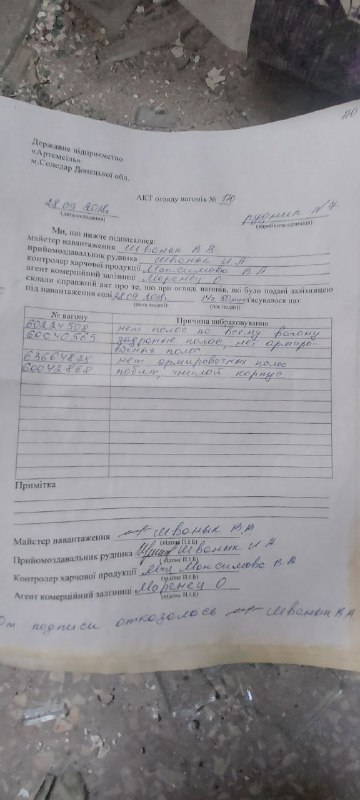 Державне підприємство
«Артемсіль»
м.Соледар Донецької обл.
АКТ огляду вагонів № 170
28.09.2018г
рудник №4
(дата складання)
Ми, що нижче підписалися:
майстер навантаження Иванык В.В
прийомоздавальник рудника Иванык И.А
контролер харчової продукції Максимова В.А
агент комерційний залізниці Маренец О
склали справжній акт про те, що при огляді вагонів, які були подані залізницею
під навантаження солі 28.09.2018г 14ч 50мин з'ясувалося що:
(дата подачі) (час подачі)
№ вагону Причина вибраковування
60824508 нет полос по всему вагону
60040565 задраные полос, нет армиро-
вочных полос
63664825 нет армировочных полос
60042868 побит, гнилой корпус
Примітка
Майстер навантаження Иванык В.В
(підпис П.І.Б)
Прийомоздавальник рудника Иванык И.А
(підпис П.І.Б)
Контролер харчової продукції Максимова В.А
(підпис П.І.Б)
Агент комерційний залізниці Маренец О
(підпис П.І.Б)
От подписи отказалась Иванык В.В